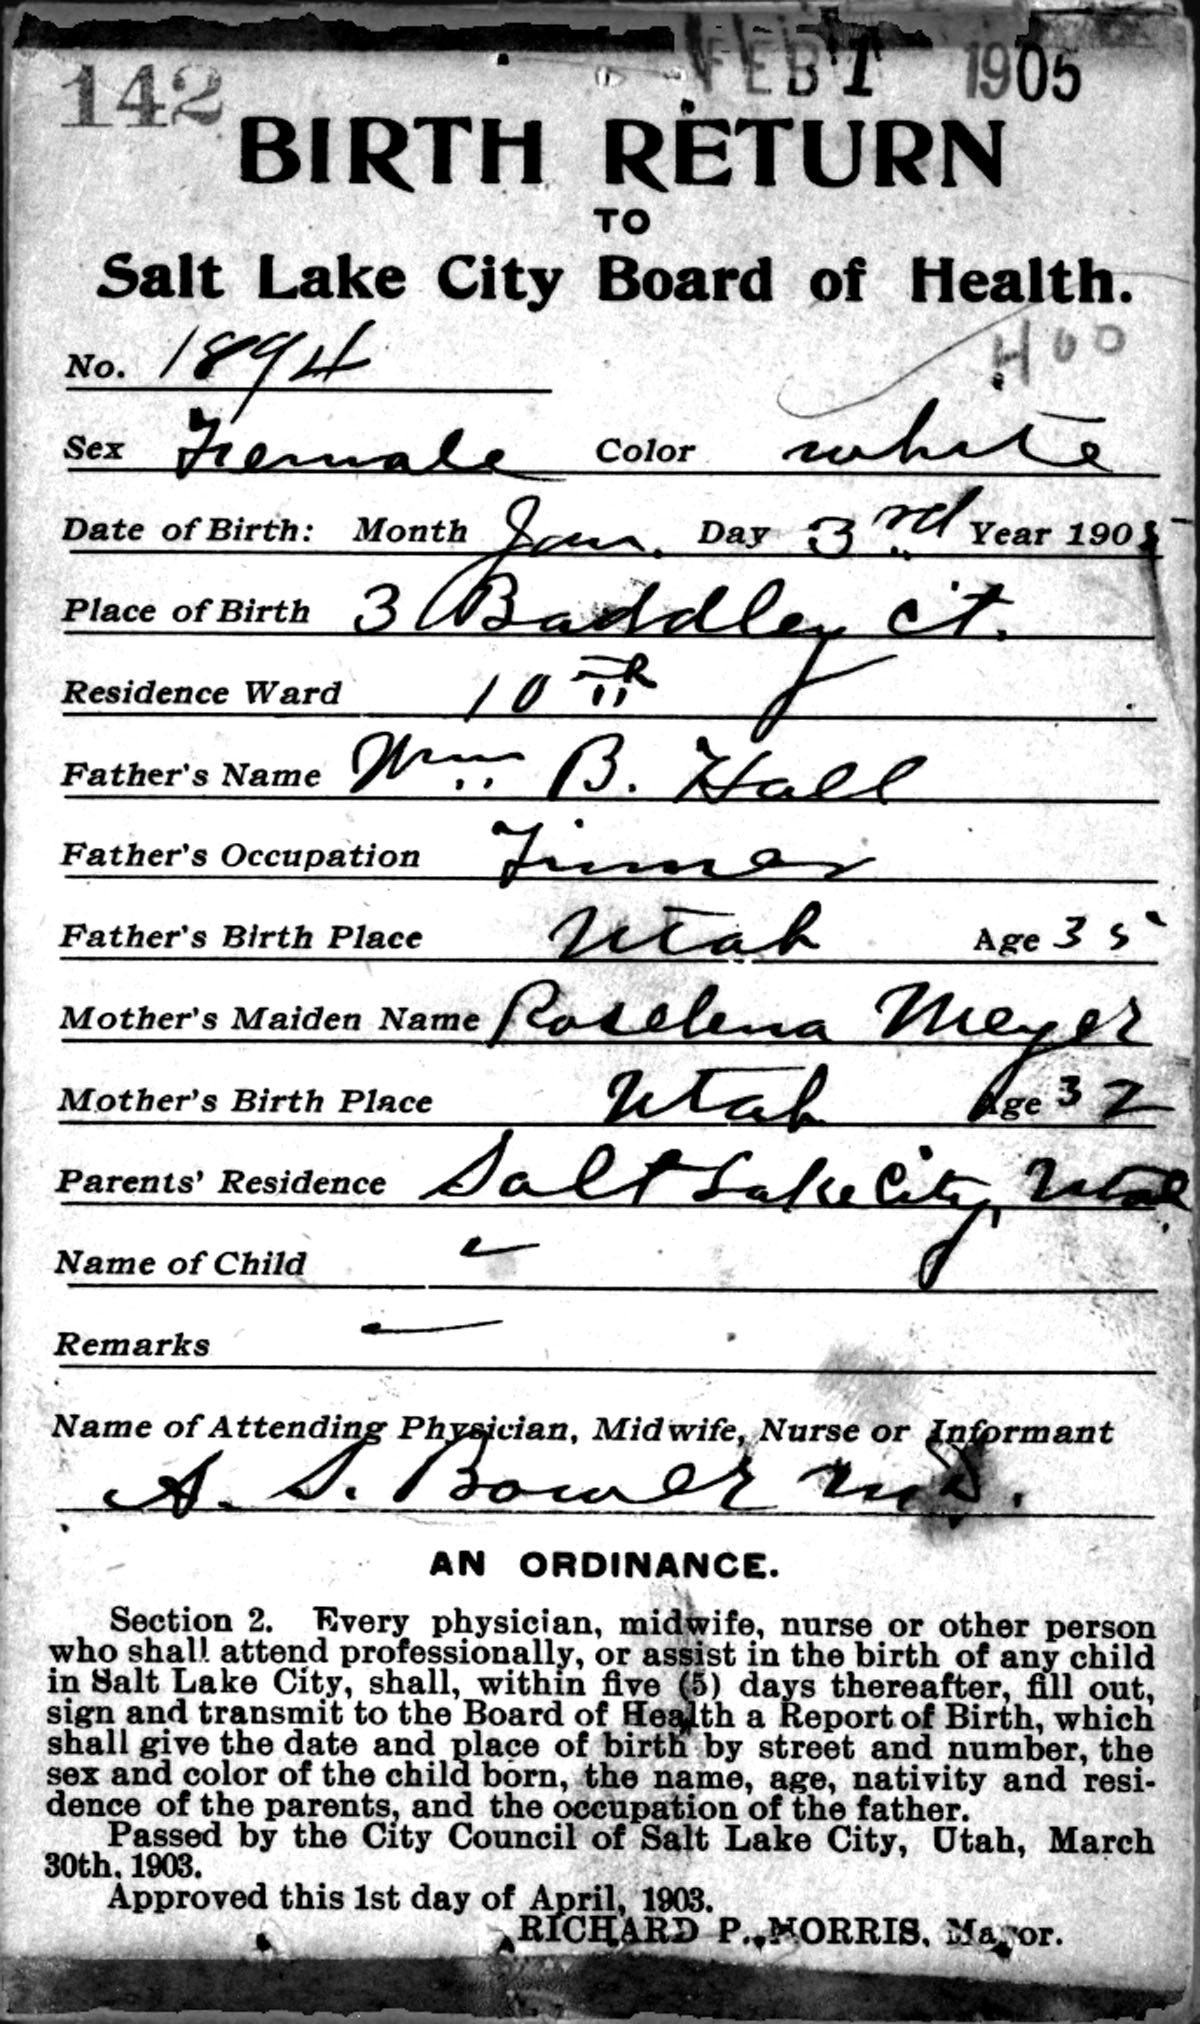 142
FEB 1 1905
BIRTH RETURN
TO
Salt Lake City Board of Health.
400
No. 1894
Sex Female Color white
Date of Birth: Month Jan. Day 3rd Year 1905
Place of Birth 3 Baddley Ct.
Residence Ward 10th
Father's Name Wm B. Hall
Father's Occupation Tinner
Father's Birth Place Utah Age 35
Mother's Maiden Name Roselena Meyer
Mother's Birth Place Utah Age 32
Parents' Residence Salt Lake City, Utah
Name of Child
Remarks
Name of Attending Physician, Midwife, Nurse or Informant
A. S. Bower MD.
AN ORDINANCE.
Section 2. Every physician, midwife, nurse or other person
who shall attend professionally, or assist in the birth of any child
in Salt Lake City, shall, within five (5) days thereafter, fill out,
sign and transmit to the Board of Health a Report of Birth, which
shall give the date and place of birth by street and number, the
sex and color of the child born, the name, age, nativity and resi-
dence of the parents, and the occupation of the father.
Passed by the City Council of Salt Lake City, Utah, March
30th, 1903.
Approved this 1st day of April, 1903.
RICHARD P. MORRIS, Mayor.